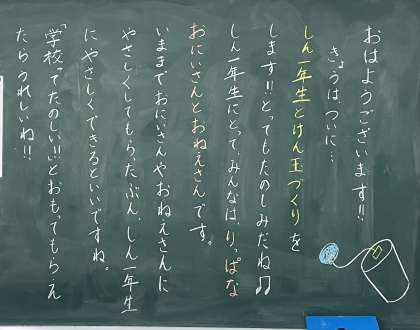 おはようございます!!
きょうは、ついに…
しん一年生とけん玉づくりを
します!!とってもたのしみだね♫
しん一年生にとって、みんなは、りっぱな
おにいさんとおねえさんです。
いままでおにいさんやおねえさんに
やさしくしてもらったぶん、しん一年生
にやさしくできるといいですね。
「学校ってたのしい!!」とおもってもらえ
たらうれしいね!!